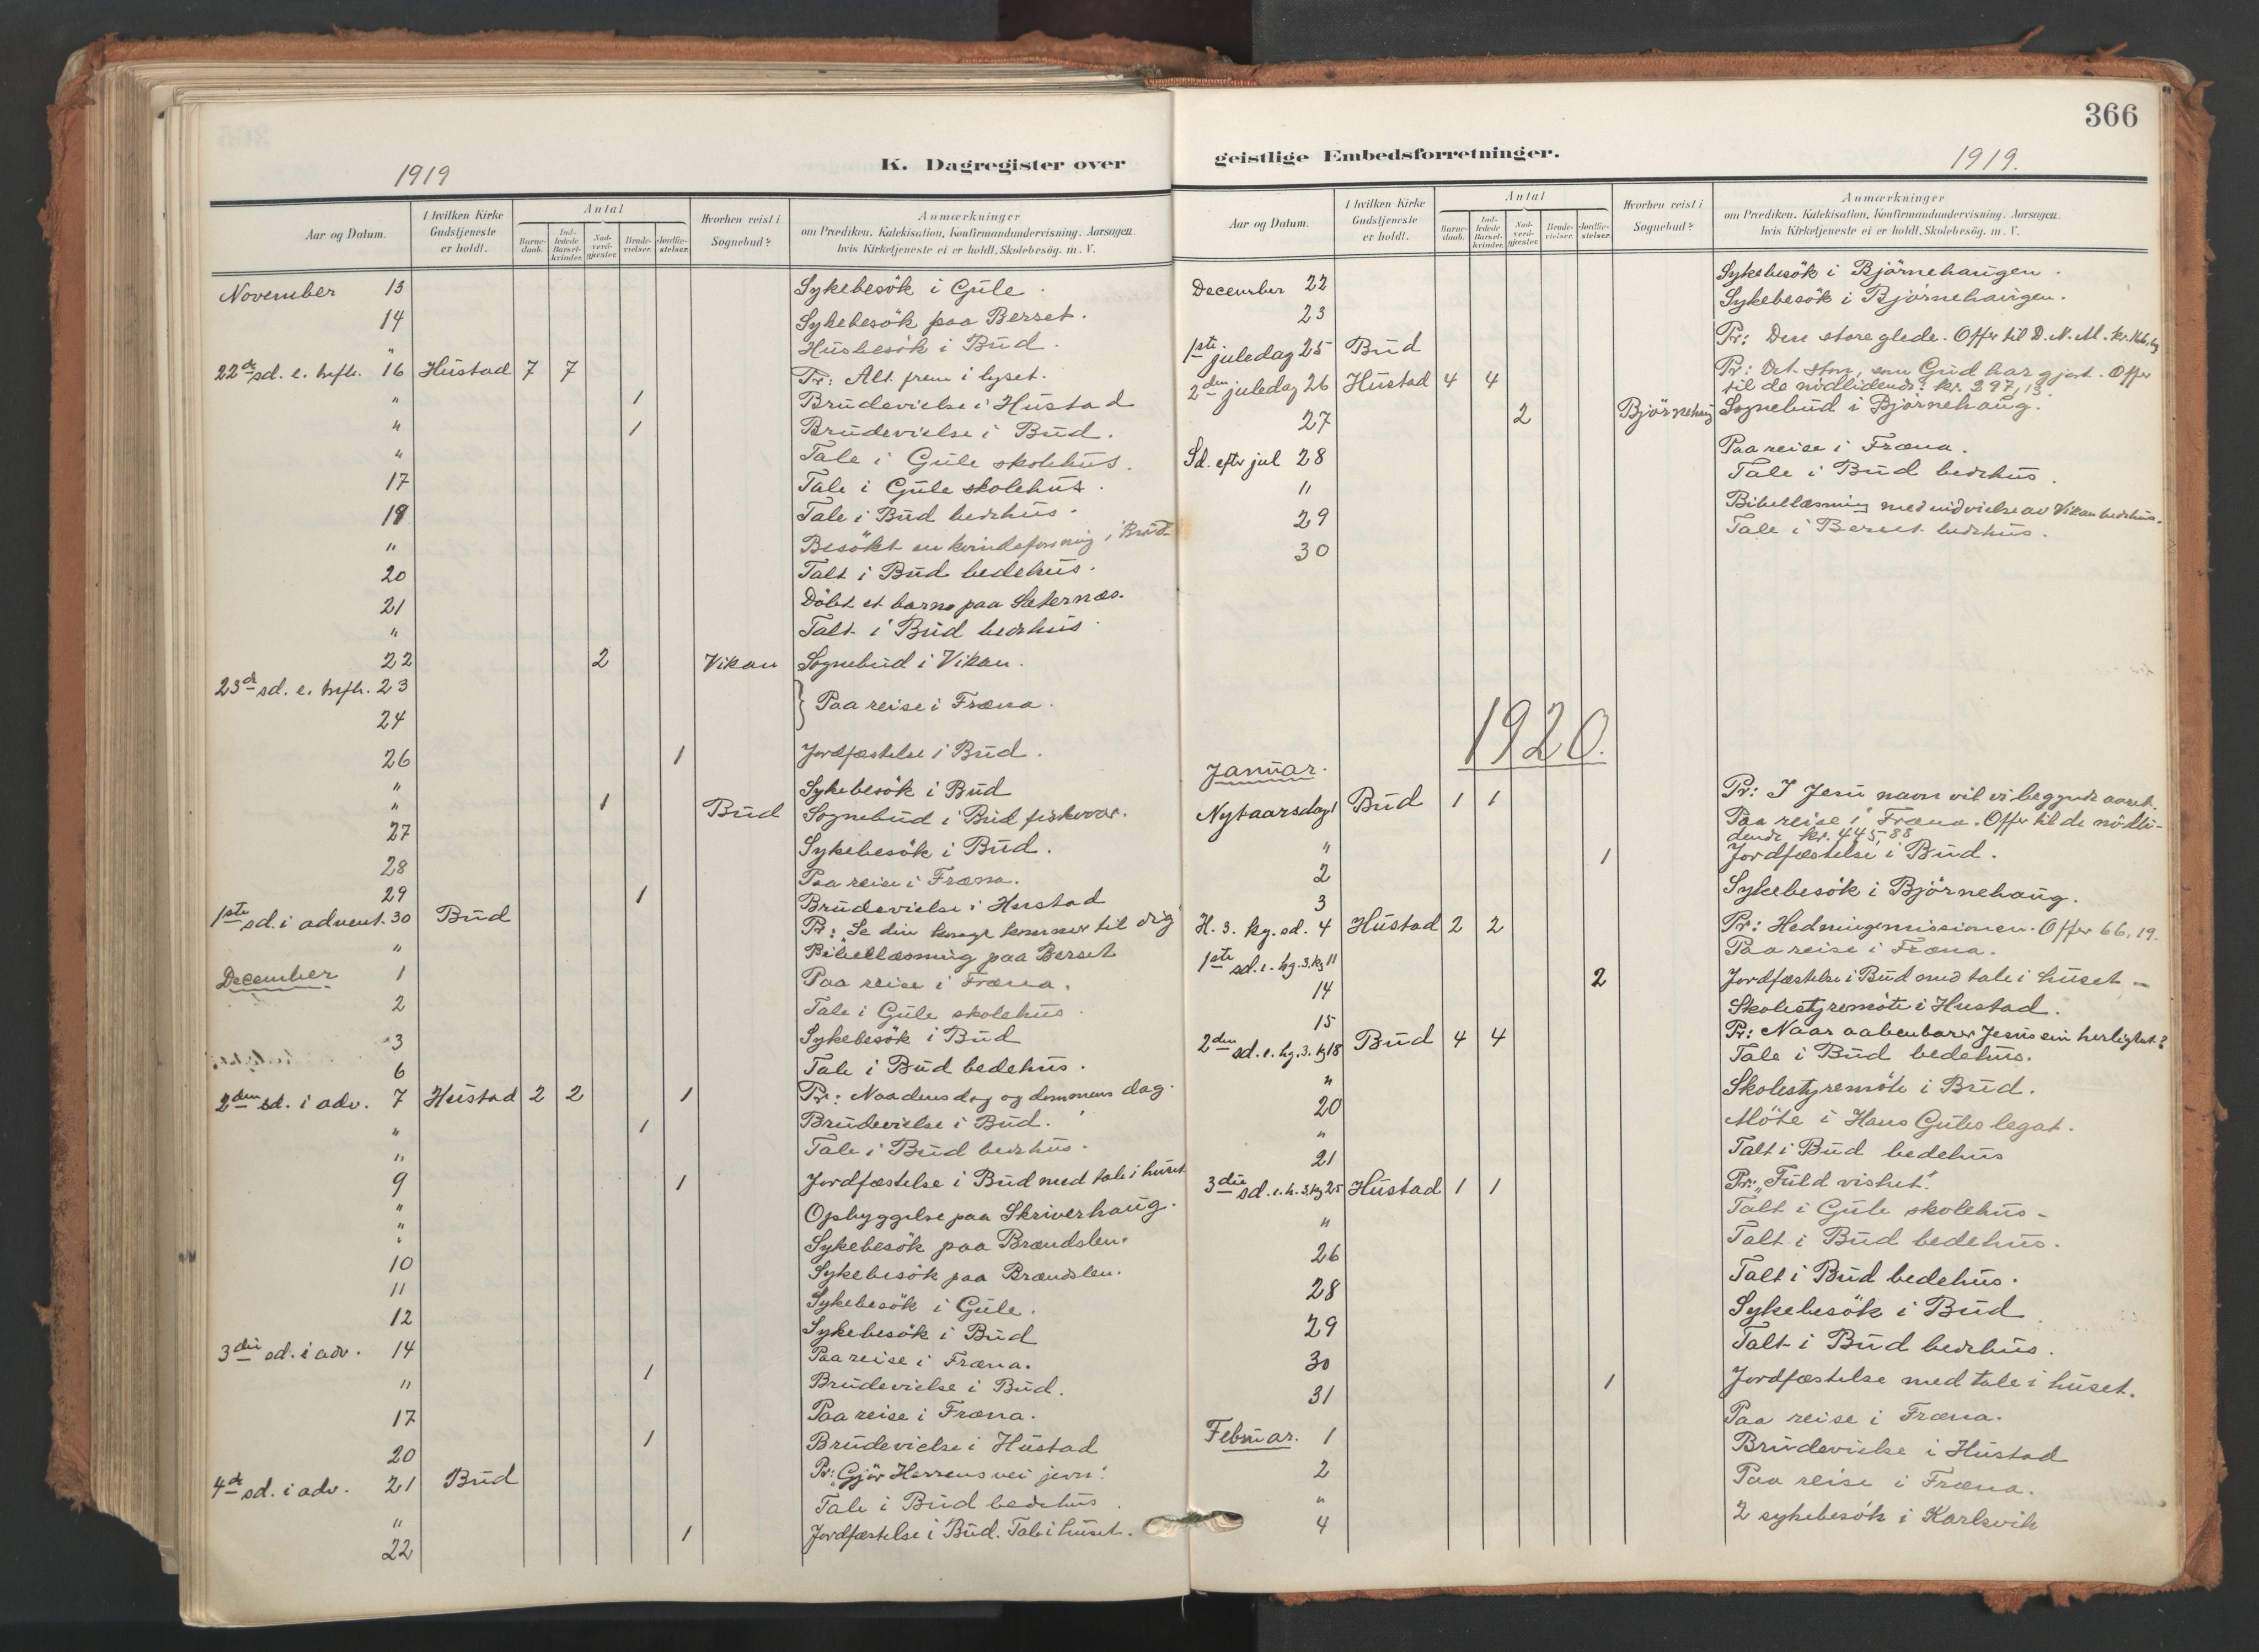 366
K. Dagregister over
geistlige Embedsforretninger.
1919
Aar og Datum.
I hvilken Kirke Gudstjeneste er holdt.
Antal
Barne-daab.
Ind-ledede Barsel-kvinder.
Nad-verd-gjæster.
Brude-vielser.
Jordfæ-stelser.
Hvorhen reist i Sognebud?
Anmærkninger
om Prædiken. Katekisation, Konfirmandundervisning. Aarsagen.
hvis Kirketjeneste ei er holdt, Skolebesøg. m. V.
November 13 Sykebesök i Gule.
14 Sykebesök paa Berset.
" Husbesök i Bud.
22de sd. e. trefh. 16 Hustad 7 7 Pr: Alt frem i lyset.
" 1 Brudevielse i Hustad
" 1 Brudevielse i Bud.
" Tale i Gule skolehus.
17 Tale i Gule skolehus.
19 Tale i Bud bedehus.
" Besökt en kvindeforening i Bud
20 Talt i Bud bedehus.
21 Döbt et barn paa Sæternæs.
" Talt i Bud bedehus.
22 2 Vikan Sognebud i Vikan.
23de sd. e. trefh. 23
24 } Paa reise i Fræna.
26 1 Jordfæstelse i Bud.
" Sykebesök i Bud
" 1 Bud Sognebud i Bud fiskevær.
27 Sykebesök i Bud.
28 Paa reise i Fræna.
29 1 Brudevielse i Hustad
1ste sd. i advent. 30 Bud Pr: "Se din konge kommer til dig"
" Bibellæsning paa Berset
December 1 Paa reise i Fræna.
2 Tale i Gule skolehus.
3 Sykebesök i Bud
6 Tale i Bud bedehus.
2den sd. i adv. 7 Hustad 2 2 1 Pr: Naadens dag og dommens dag.
" 1 Brudevielse i Bud.
" Tale i Bud bedehus.
9 1 Jordfæstelse i Bud med tale i huset
" Opbyggelse paa Skriverhaug.
" Sykebesök paa Brændslen.
10 Sykebesök paa Brændslen.
11 Sykebesök i Gule.
12 Sykebesök i Bud
3die sd. i adv. 14 Paa reise i Fræna.
" 1 Brudevielse i Bud.
17 Paa reise i Fræna.
20 1 Brudevielse i Hustad
4de sd. i adv. 21 Bud Pr: "Gjör Herrens vei jevn".
" Tale i Bud bedehus.
22 1 Jordfæstelse i Bud. Tale i huset.
1919.
Aar og Datum.
I hvilken Kirke Gudstjeneste er holdt.
Antal
Barne-daab.
Ind-ledede Barsel-kvinder.
Nad-verd-gjæster.
Brude-vielser.
Jordfæ-stelser.
Hvorhen reist i Sognebud?
Anmærkninger
om Prædiken. Katekisation, Konfirmandundervisning. Aarsagen.
hvis Kirketjeneste ei er holdt, Skolebesög. m. V.
December 22 Sykebesök i Björnehaugen.
23 Sykebesök i Björnehaugen.
1ste juledag 25 Bud Pr: Den store glede. Offer til D. N. M. kr. 166,
2den juledag 26 Hustad 4 4 Pr: Det store, som Gud har gjort. Offer
til de nödlidende: kr. 297,13.
27 2 Björnehaug Sognebud i Björnehaug.
Sd. eftr jul 28 Paa reise i Fræna.
" Tale i Bud bedehus.
29 Bibellæsning med indvielse av Vikan bedehus.
30 Tale i Berset bedehus.
1920.
Januar.
Nytaarsdag 1 Bud 1 1 Pr: I Jesu navn vil vi begynde aaret.
" Paa reise i Fræna. Offer til de nödli-
dende kr. 445,88
2 1 Jordfæstelse i Bud.
3 Sykebesök i Björnehaug.
H. 3. kg. sd. 4 Hustad 2 2 Pr: Hedningemissionen. Offer 66,19.
1ste sd. e. hg. 3. kg 11 Paa reise i Fræna.
14 2 Jordfæstelse i Bud med tale i huset -
15 Skolestyremöte i Hustad.
2den sd. e. hg. 3. kg 18 Bud 4 4 Pr: Naar aabenbarer Jesus sin herlighet?
" Tale i Bud bedehus.
20 Skolestyremöte i Bud.
" Möte i Hans Gules legat.
21 Talt i Bud bedehus
3die sd. e. h. 3. kg 25 Hustad 1 1 Pr: "Fuld vished".
" Talt i Gule skolehus -
26 Talt i Bud bedehus.
28 Talt i Bud bedehus.
29 Sykebesök i Bud
30 Talt i Bud bedehus.
31 1 Jordfæstelse med tale i huset.
Februar. 1 Paa reise i Fræna.
2 Brudevielse i Hustad
" Paa reise i Fræna.
4 2 sykebesök i Karlsvik